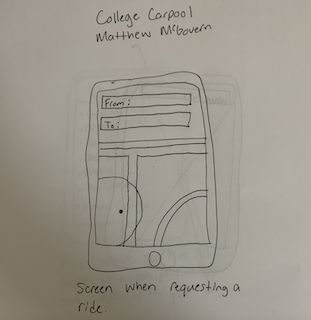 College Carpool
Matthew McGovern
From:
To:
Screen when requesting a
ride.